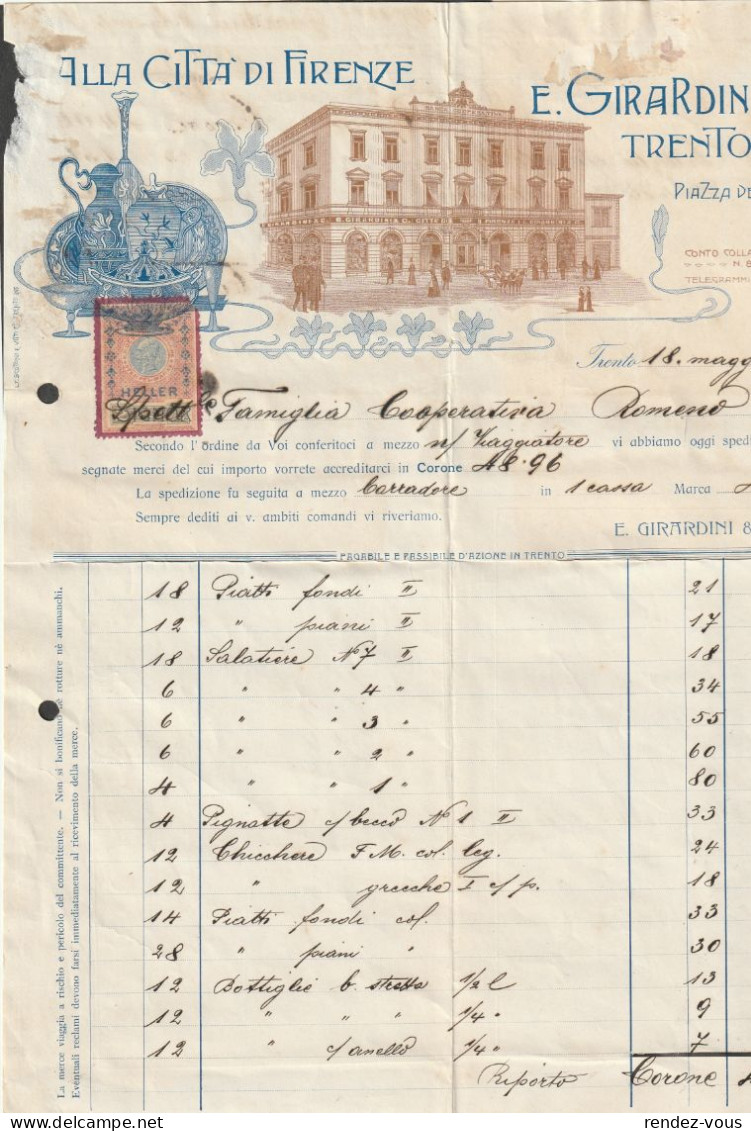 ALLA CITTÀ DI FIRENZE
E. GIRARDIN
TRENTO
PIAZZA DE
CONTO COLLA
N. 8
TELEGRAMM
HELLER
Trento 18. magg
Spett.le Famiglia Cooperativa Romeno
Secondo l'ordine da Voi conferitoci a mezzo n/ Viaggiatore vi abbiamo oggi spedi
segnate merci del cui importo vorrete accreditarci in Corone 48.96
La spedizione fu seguita a mezzo Corradore in 1 cassa Marca
Sempre dediti ai v. ambiti comandi vi riveriamo.
E. GIRARDINI &
PAGABILE E PASSIBILE D'AZIONE IN TRENTO
18 Piatti fondi II 21
12 " piani II 17
18 Salatiere N 7 II 18
6 " " 4 " 34
6 " " 3 " 55
6 " " 2 " 60
4 " " 1 " 80
4 Pignatte c/ becco N 1 II 33
12 Chicchere F.M. col. leg. 24
12 " grecche I c/p. 18
14 Piatti fondi col. 33
28 " piani " 30
12 Bottiglie b. stretta 1/2 l 13
12 " " " 1/4 " 9
12 " c/ anello 1/4 " 7
Riporto Corone 4
La merce viaggia a rischio e pericolo del committente. — Non si bonificano nè rotture nè ammanchi.
Eventuali reclami devono farsi immediatamente al ricevimento della merce.
rendez-vous